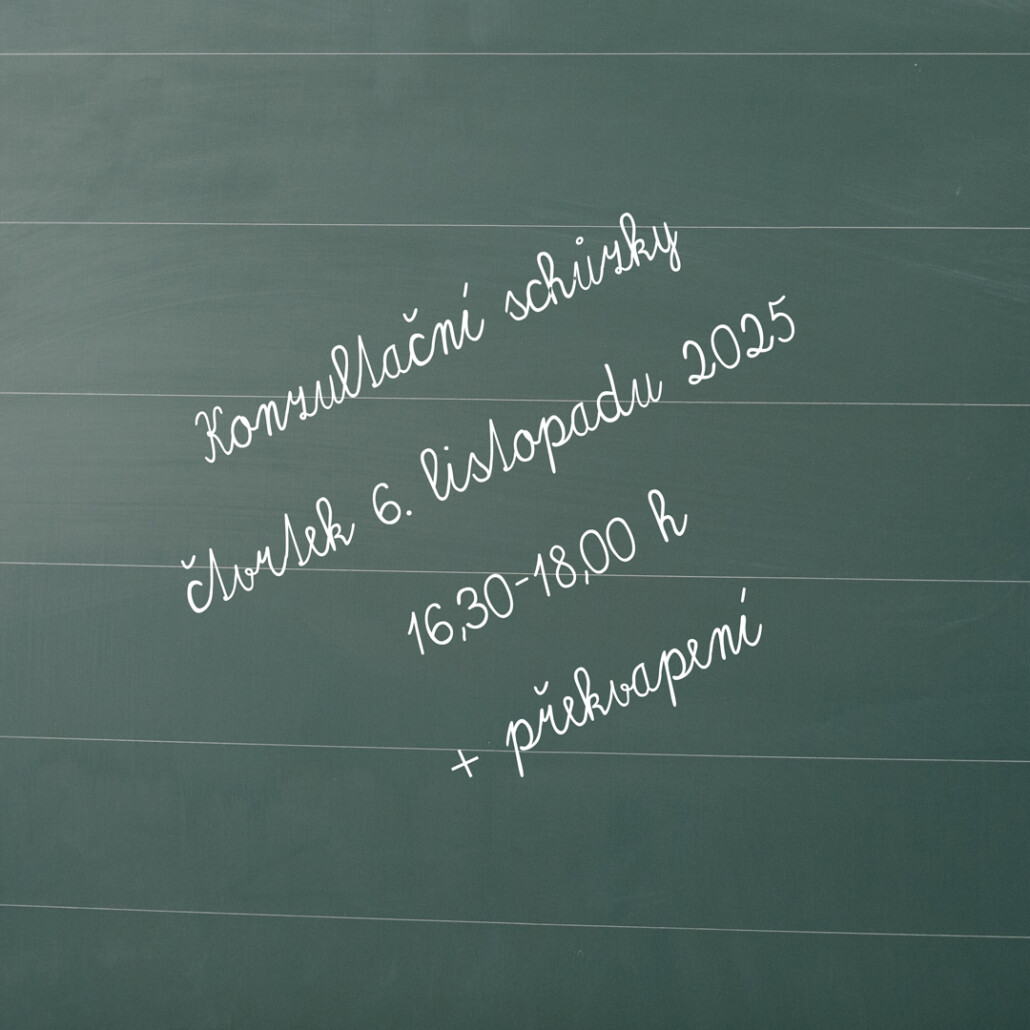 Konzultační schůzky
čtvrtek 6. listopadu 2025
16,30-18,00 h
+ překvapení